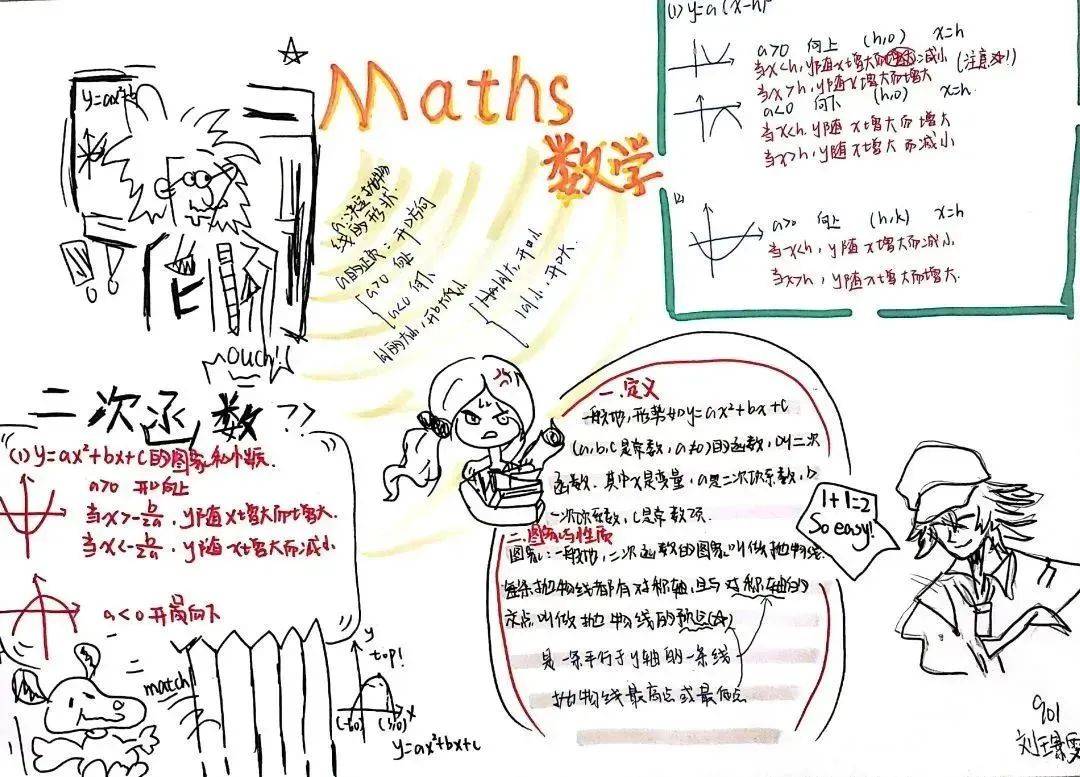 Maths
数学
y=ax²+
Ouch!
a:决定抛物
线的形状.
a的正负:开口方向
a>0 向上
a<0 向下
|a|的大小:开口大小
|a|越大,开口小
|a|小,开口大
(1) y=a(x-h)²
a>0 向上 (h,0) x=h
当x<h,y随x增大而减小(注意!)
当x>h,y随x增大而增大
a<0 向下 (h,0) x=h.
当x<h,y随x增大而增大
当x>h,y随x增大而减小
(2)
a>0 向上 (h,k) x=h
当x<h,y随x增大而减小
当x>h,y随x增大而增大.
二次函数??
(1) y=ax²+bx+c的图象和性质.
a>0 开口向上
当x>-b/2a,y随x增大而增大.
当x<-b/2a,y随x增大而减小
a<0 开口向下
match
y
top!
x
y=ax²+bx+c
一.定义
一般地,形势如y=ax²+bx+c
(a,b,c是常数,a≠0)的函数,叫二次
函数.其中x是变量,a是二次项系数,b
一次项系数,c是常数项.
二.图象与性质
图象:一般地,二次函数的图象叫做抛物线.
每条抛物线都有对称轴,且与对称轴的
交点叫做抛物线的顶点
是一条平行于y轴的一条线
抛物线最高点或最低点
1+1=2
So easy!
901